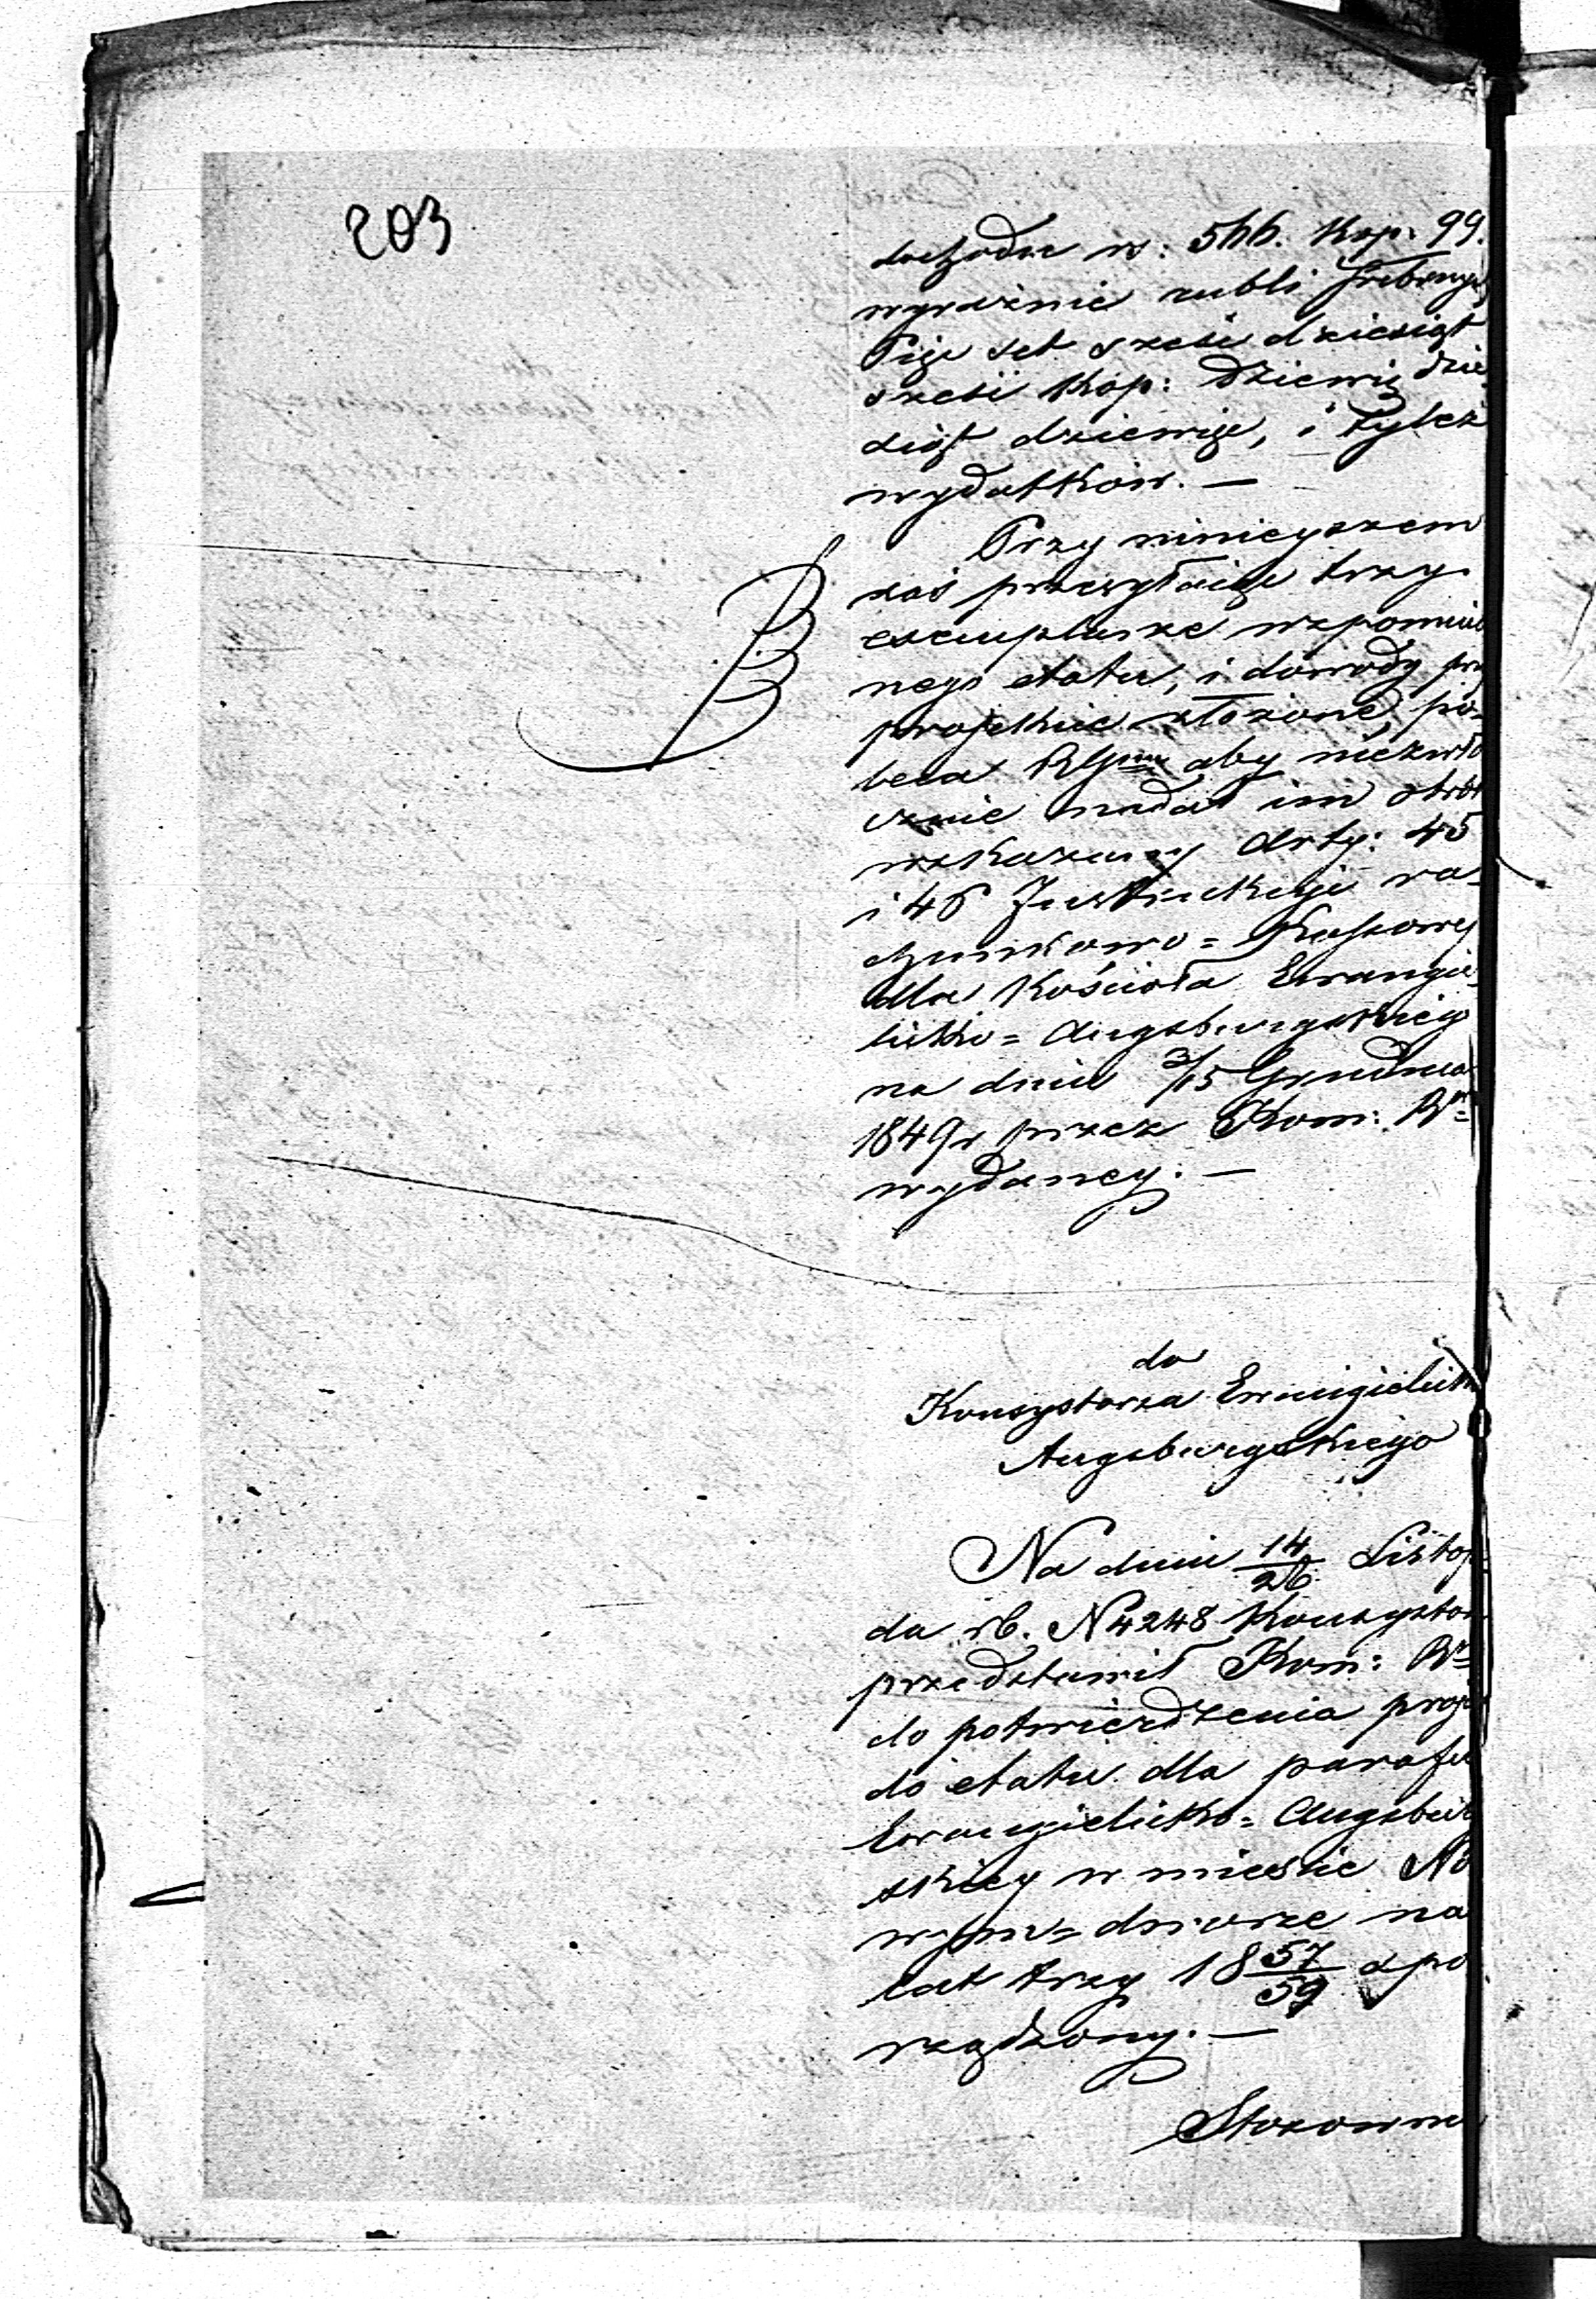 203
dochodu rs: 566. Kop. 99.
wyraźnie rubli srebrnych
Pięc set sześć dziesiąt
sześć Kop: Dziewię dzie
siąt dziewięc, i tyleż
wydatków. —
Przy ninieyszem
zaś przesyłaiąc trzy
exemplarze wspomnio
nego etatu, i dowody przy
projekcie złożone, po=
leca aby niezwło
cznie nadał im obrót
wskazany Arty: 45
i 46 Instrukcyi ra=
chunkowo = Kassowey
dla Kościoła Ewangie=
licko = Augsburgskiego
na dniu 3/15 Grudnia
1849 r przez Kom: R=
wydaney. —
do
Konsystorza Ewangielicko
Augsburgskiego
Na dniu 14/26 Listop
da rb. N 4248 Konsystor
przedstawił Kom: R=
do potwierdzenia proje
do etatu dla parafii
Ewangielicko = Augsburg
skiey w mieście No
wym = dworze na
lat trzy 18 57/59 spo
rządzony. —
Stosownie